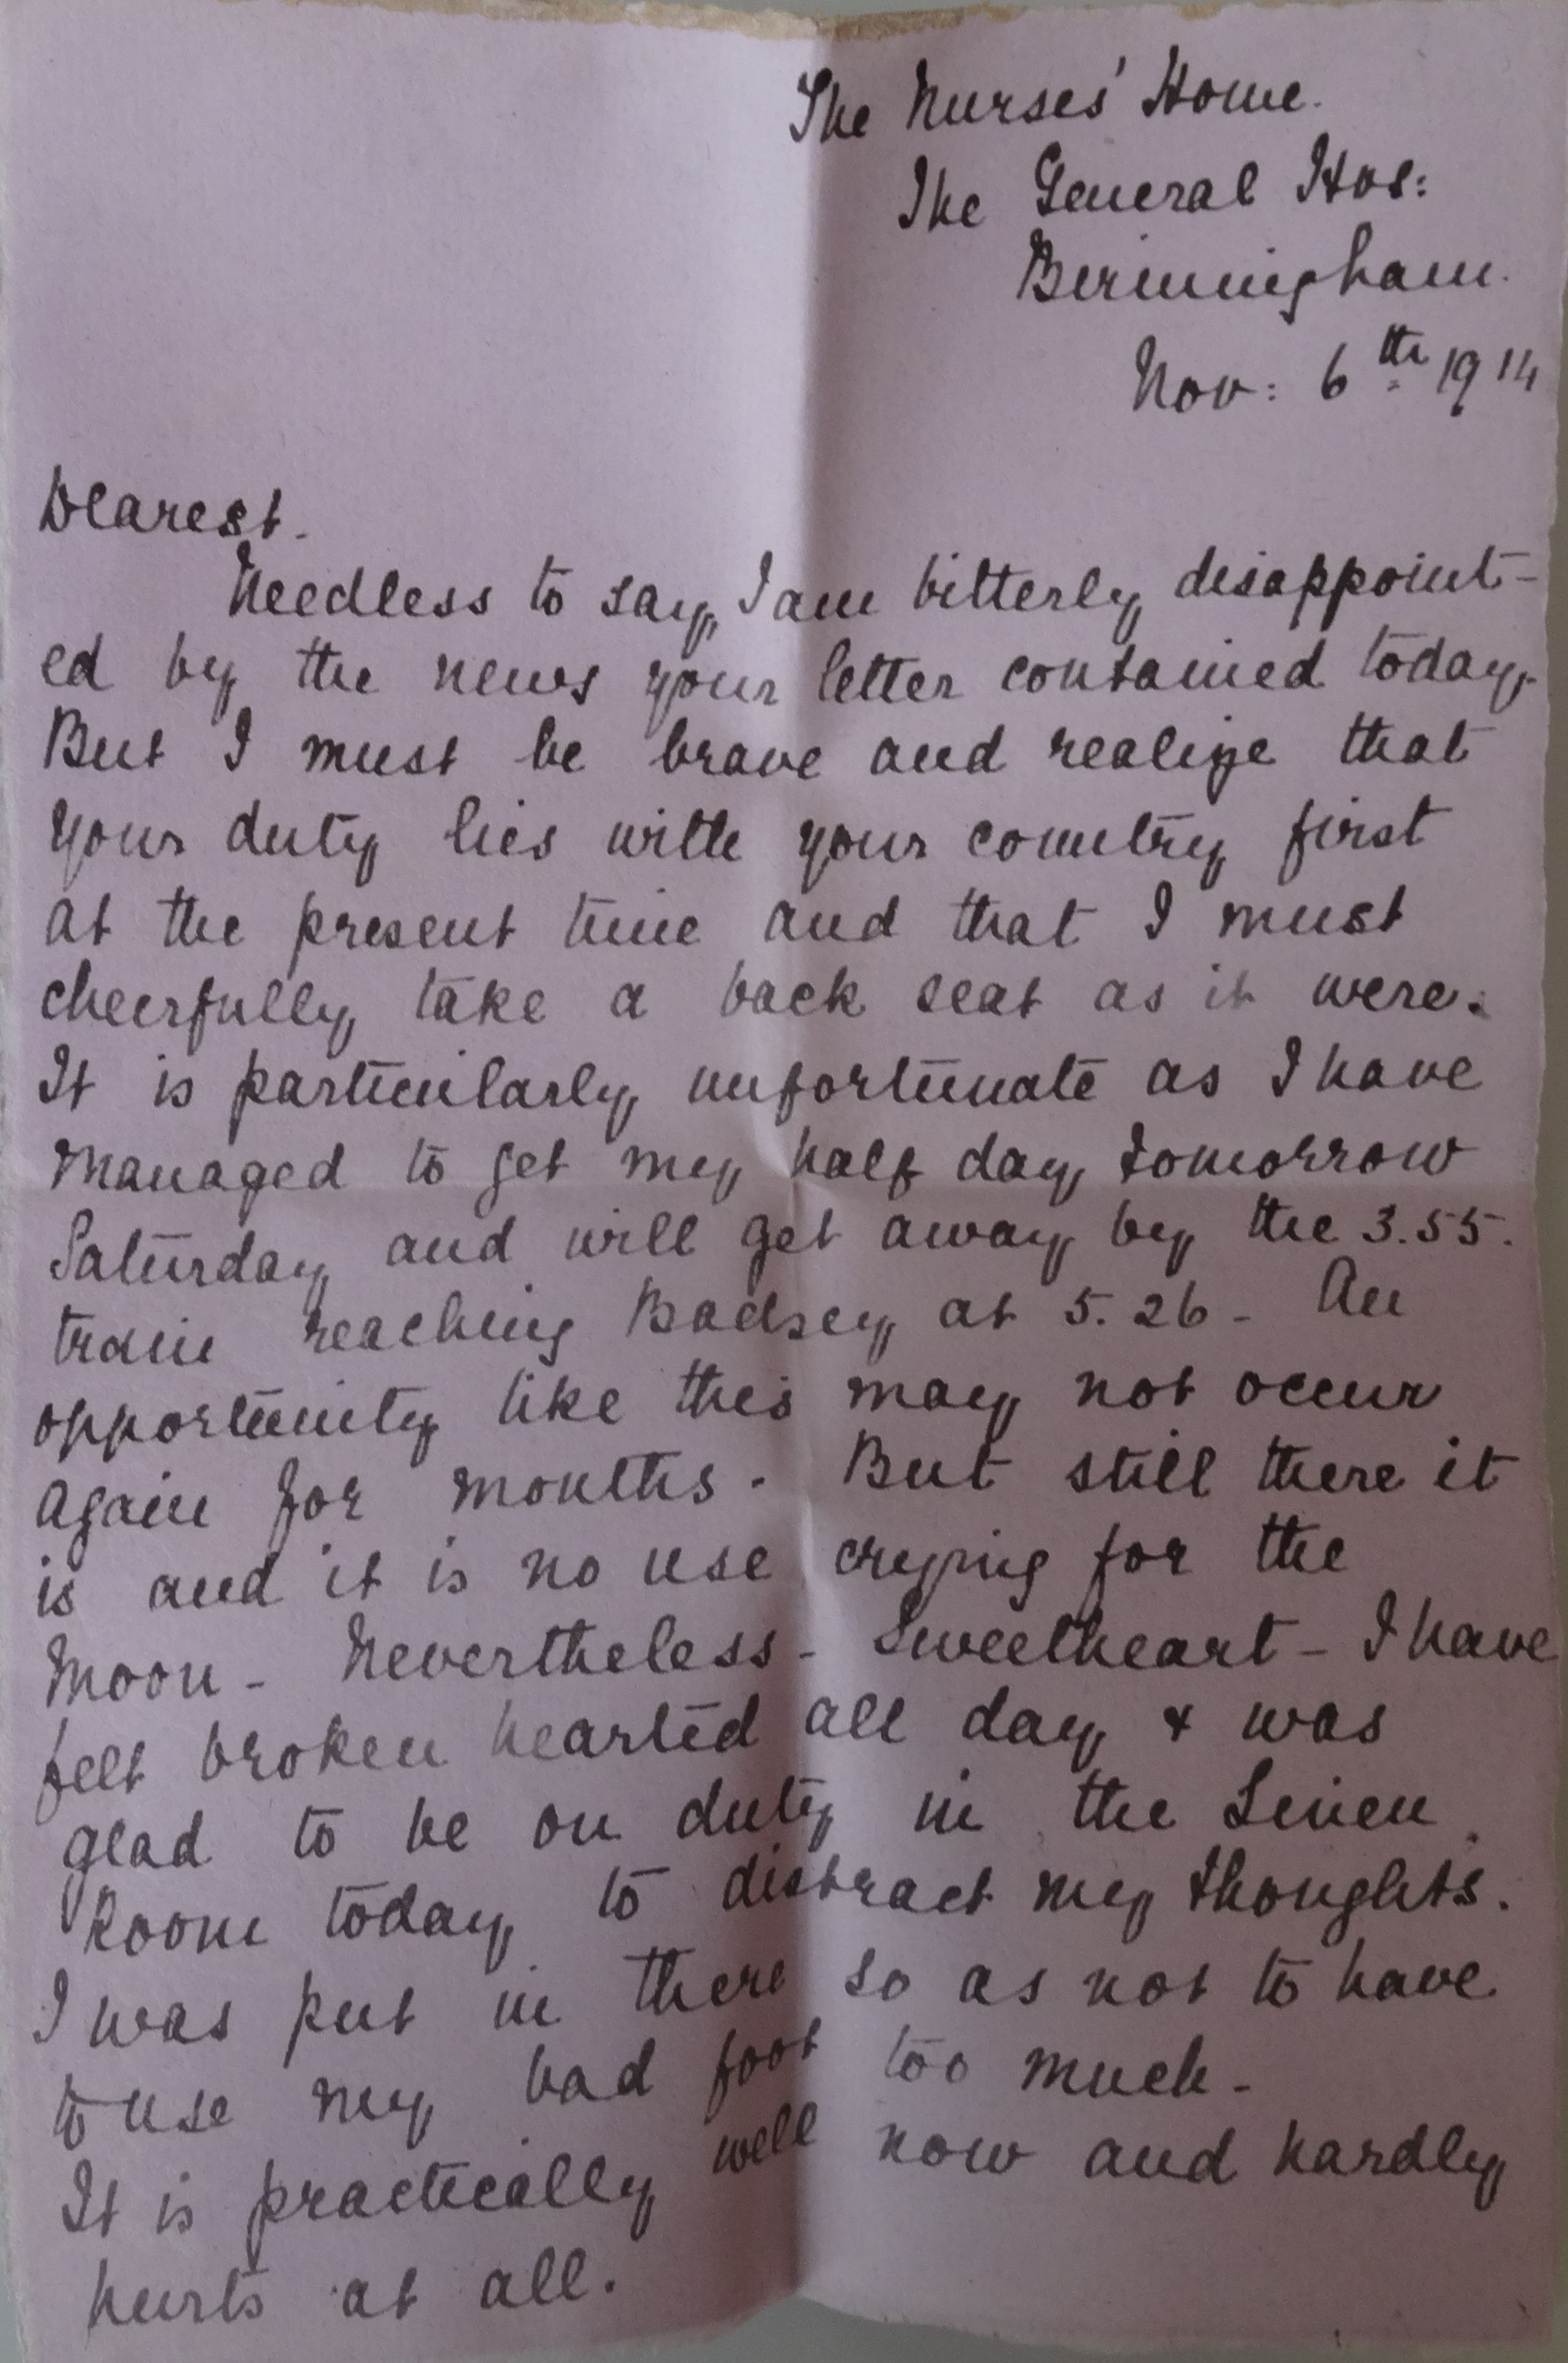 The Nurses' Home.
The General Hos:
Birmingham.
Nov: 6th 1914
Dearest.
Needless to say, I am bitterly disappoint-
ed by the news your letter contained today.
But I must be brave and realize that
your duty lies with your country first
at the present time and that I must
cheerfully take a back seat as it were.
It is particularly unfortunate as I have
managed to get my half day tomorrow
Saturday and will get away by the 3.55.
train reaching Badsey at 5.26 - An
opportunity like this may not occur
again for months. But still there it
is and it is no use crying for the
Moon - Nevertheless - Sweetheart - I have
felt broken hearted all day & was
glad to be on duty in the Linen
Room today to distract my thoughts.
I was put in there so as not to have
to use my bad foot too much -
It is practically well now and hardly
hurts at all.